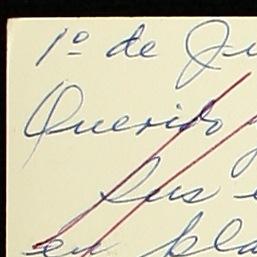 1º de Ju
Querido
Sus e
en pla